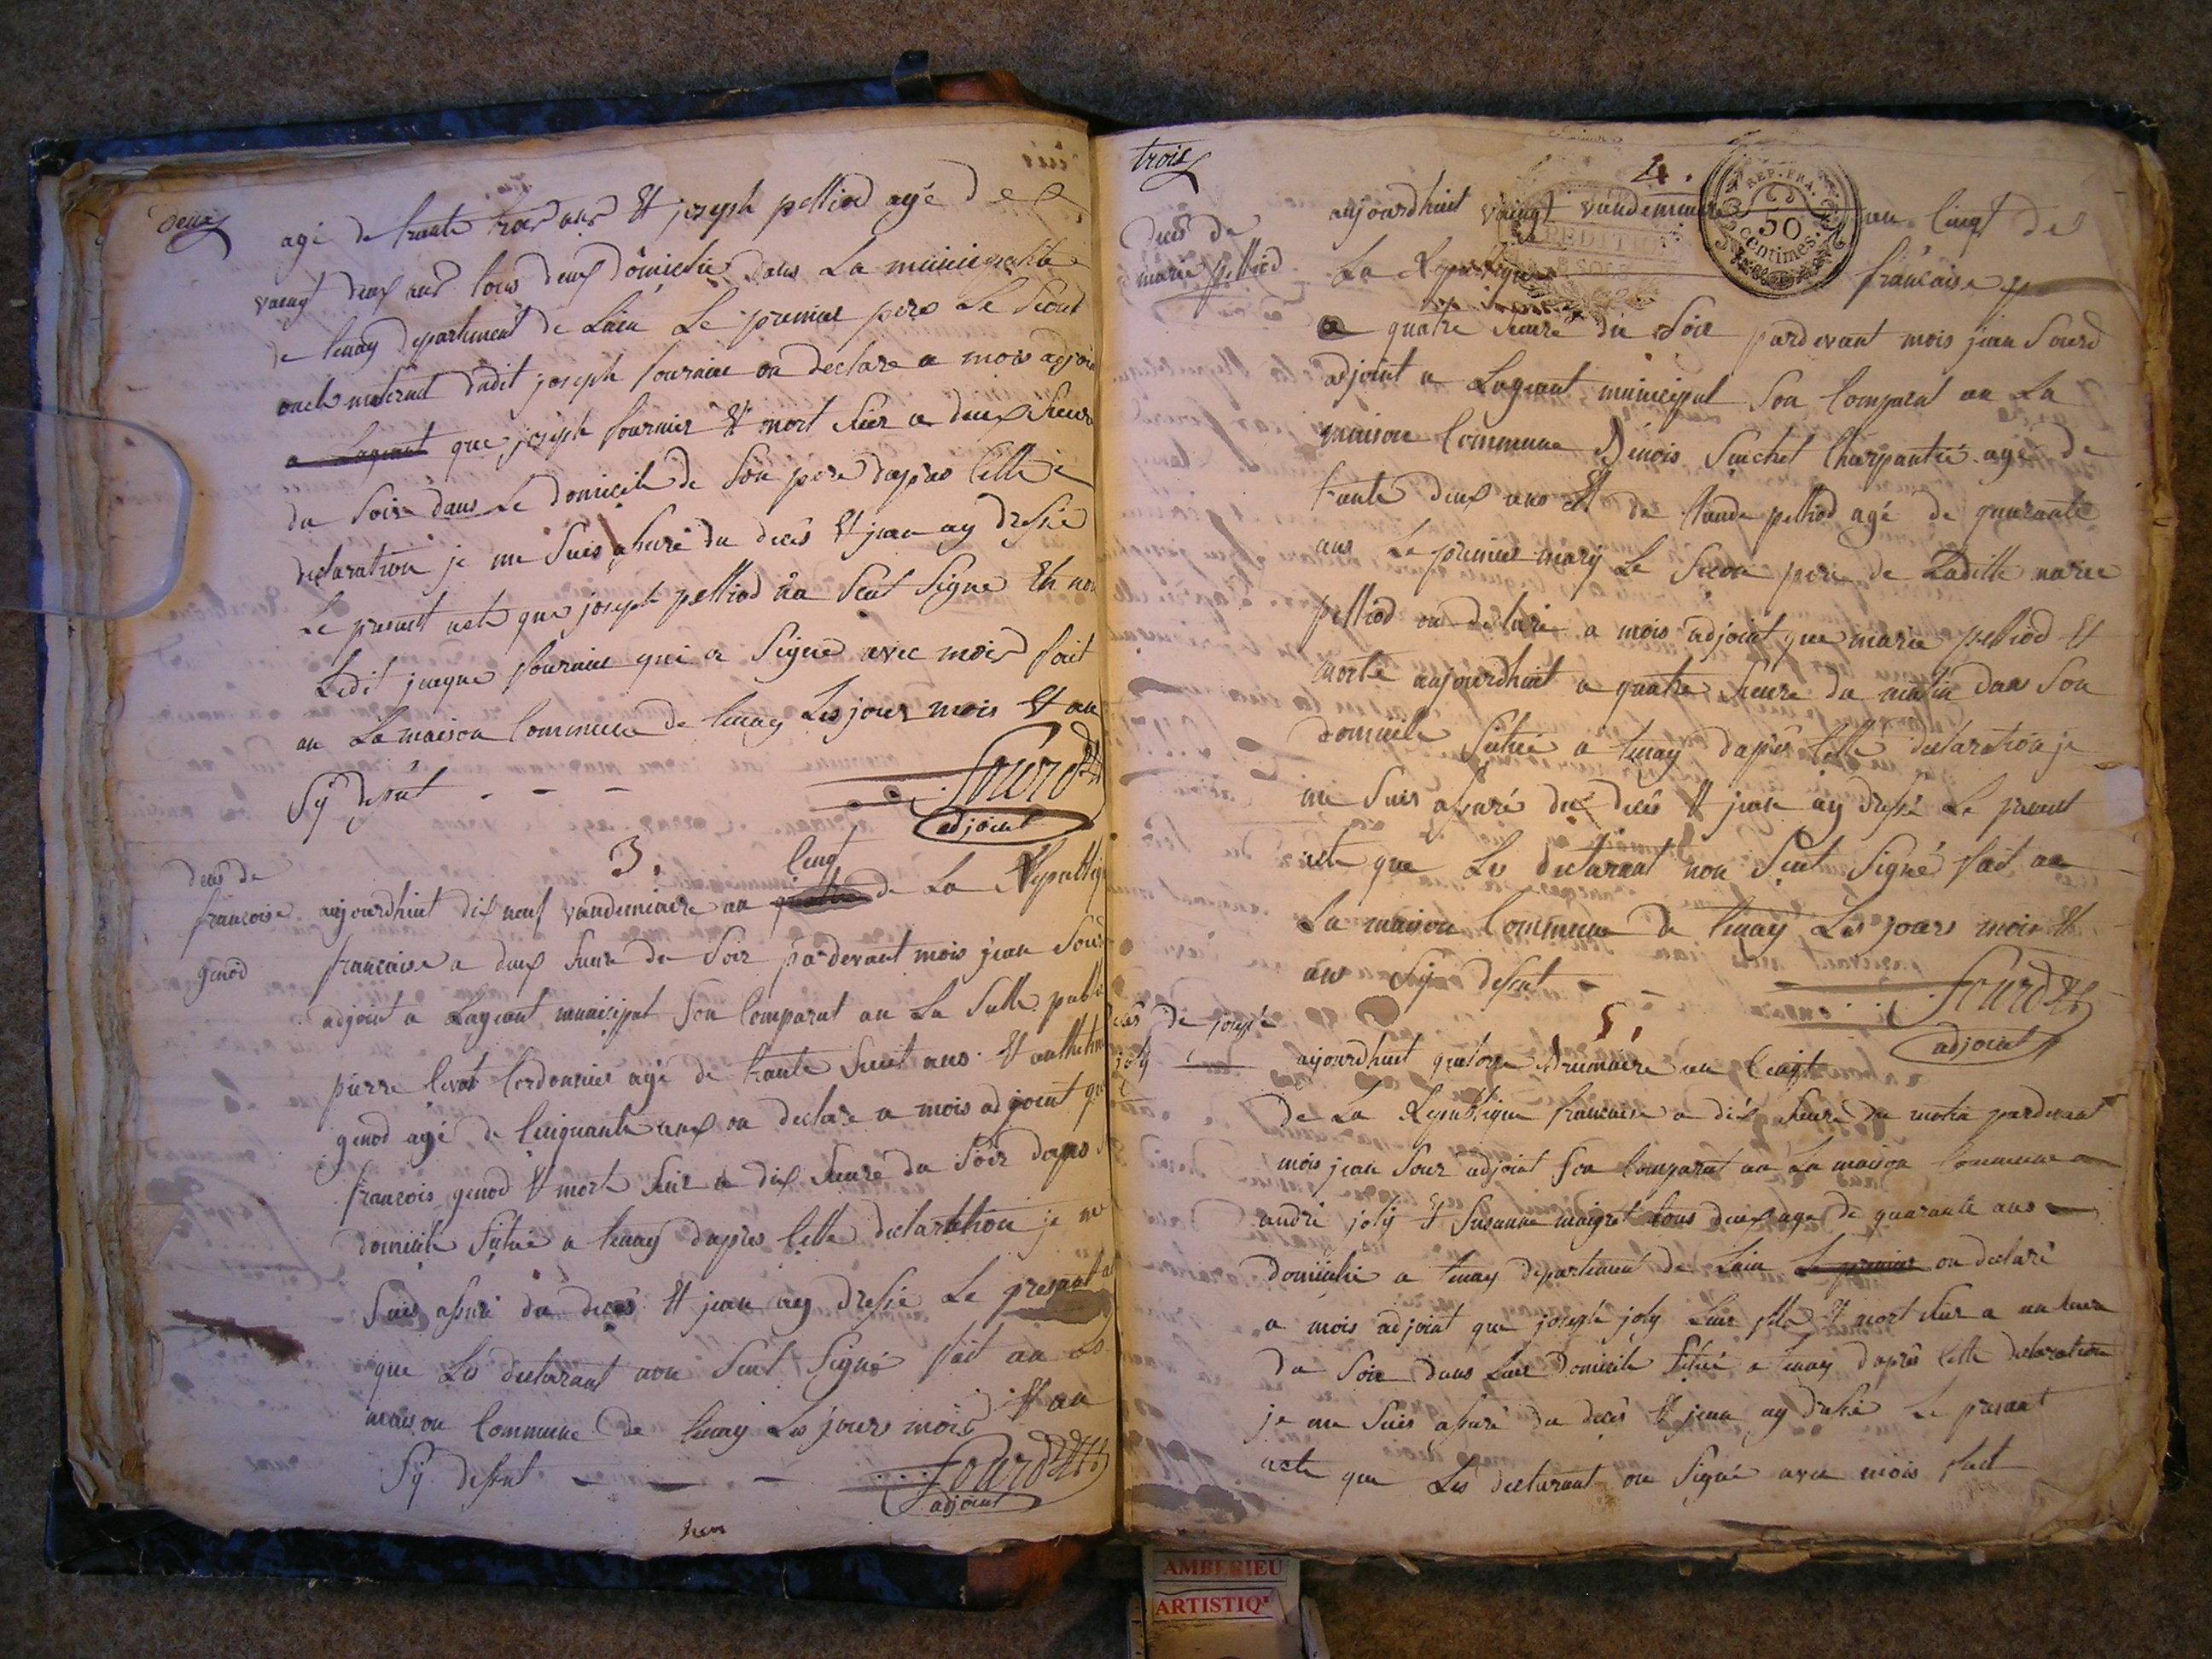 deux
agé de trante trois ans Et joseph pelliod agé de
vaingt deux ans tous deux domicilié dans La municipalité
de tenay departement de Lain Le premier pere Le segond
oncle maternel dudit joseph fournier on declare a mois adjoin
a Lageant que joseph fournier Et mort hier a deux heure
du Soir dans Le domicile de Son pere dapres Cette
declaration je me Suis assuré du deces Et jean ay dressé
Le presant acte que joseph pelliod na Seut Signe Et non
Ledit jaque fournier qui a Signé avec mois fait
an La maison Commune de tenay Les jour mois Et an
Sy desut - - -
Sourd
adjoint
3.
deces de
francoise
genod
Cinq
aujourdhuit dix neuf vandemiaire an quatre de La Republiqu
francaise a deux heure du Soir pardevant mois jean Sour
adjoint a Lageant municipal Son Comparut an La Salle publi
pierre Cordonnier agé de trante huit ans Et
genod agé de Cinquante ans on declare a mois adjoint que
francois genod Et morte hier a dix heure du Soir dans
domicile Situé a tenay dapres Cette declaration je me
Suis assuré du deces Et jean ay dressé Le presant
que Les declarant non Seut Signé fait an La
maison Commune de tenay Les jours mois Et an
Sy desut - - -
Sourd
adjoint
trois
4.
REP. FRA.
50
centimes.
deces de
marie pelliod
aujourdhuit vaingt vandemiaire an Cinq de
La Republique francaise
a quatre heure du Soir pardevant mois jean Sourd
adjoint a Lageant municipal Son Comparut an La
maison Commune Benois Suchet Charpantié agé de
trante deux ans Et de Claude pelliod agé de quarante
ans Le premier mary Le Segon pere de Laditte marie
pelliod on declaré a mois adjoint que marie pelliod Et
morte aujourdhuit a quatre heure du matin dans Son
domicile Situé a tenay dapres Cette declaration je
me Suis assuré du deces Et jean ay dressé Le presant
acte que Les declarant non Seut Signé fait an
La maison Commune de tenay Les jours mois Et
ans Sy desut - -
Sourd
adjoint
5.
deces de joseph
joly
aujourdhuit quatorze Brumaire an Cinqt
de La Republique francaise a dix heure du matin pardevant
mois jean Sour adjoint Son Comparut an La maison Commune
andré joly Et Susanne maigret tous deux age de quarante ans
domicilié a tenay departement de Lain Le premier on declaré
a mois adjoint que joseph joly Leur fils Et mort hier a un heure
du Soir dans Leur Domicile Situé a tenay dapres Cette declaration
je me Suis assuré du deces Et jean ay dressé Le presant
acte que Les declarant on Signé avec mois fait
AMBERIEU
ARTISTIQ'